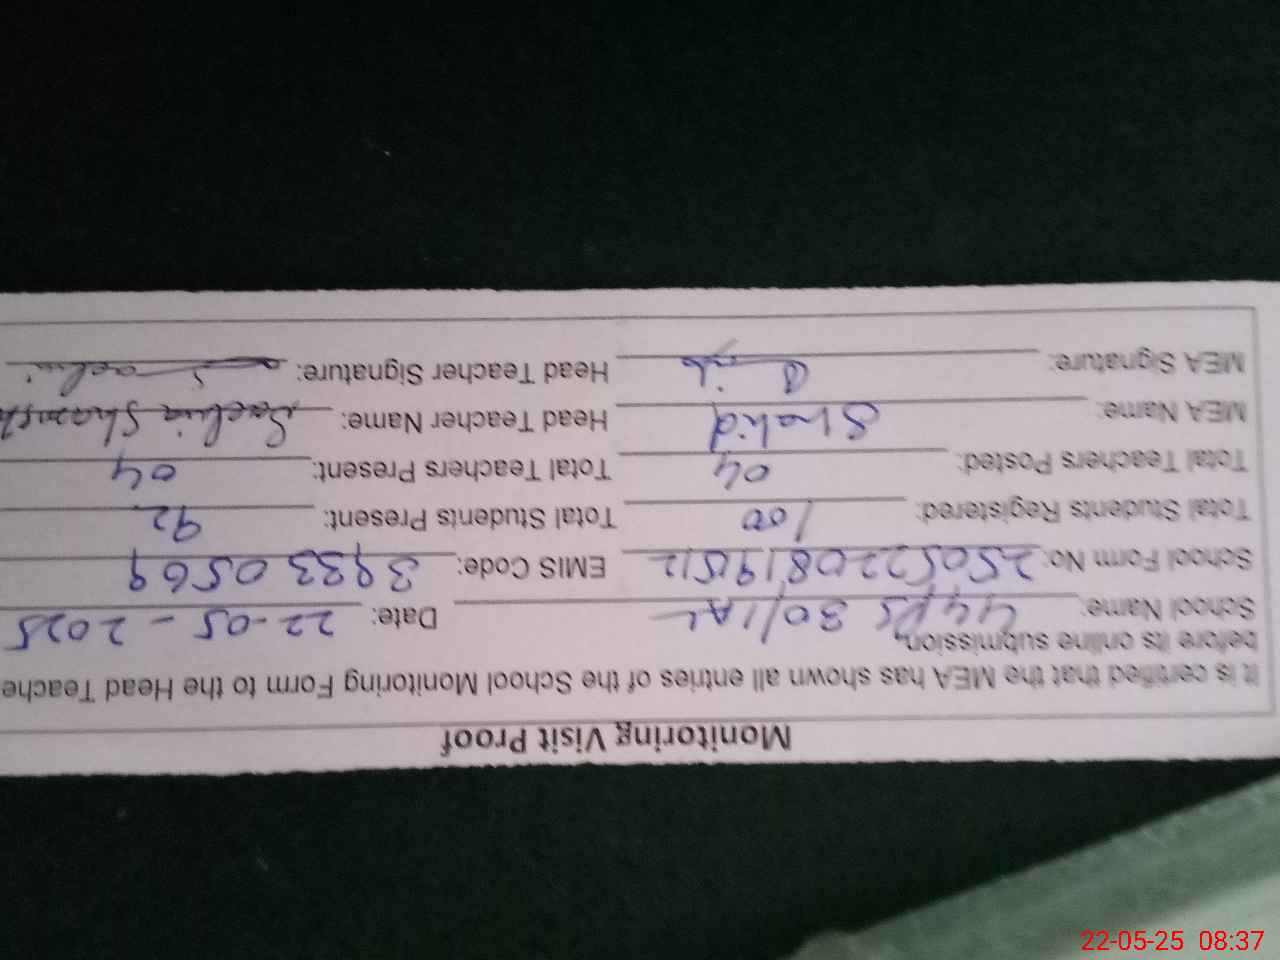 Monitoring Visit Proof
It is certified that the MEA has shown all entries of the School Monitoring Form to the Head Teache
before its online submission.
School Name: 30/1AL Date: 22-05-2025
School Form No: 2505220819512 EMIS Code: 39330569
Total Students Registered: 100 Total Students Present: 92
Total Teachers Posted: 04 Total Teachers Present: 04
MEA Name: Shahid Head Teacher Name:
MEA Signature: Head Teacher Signature:
22-05-25 08:37